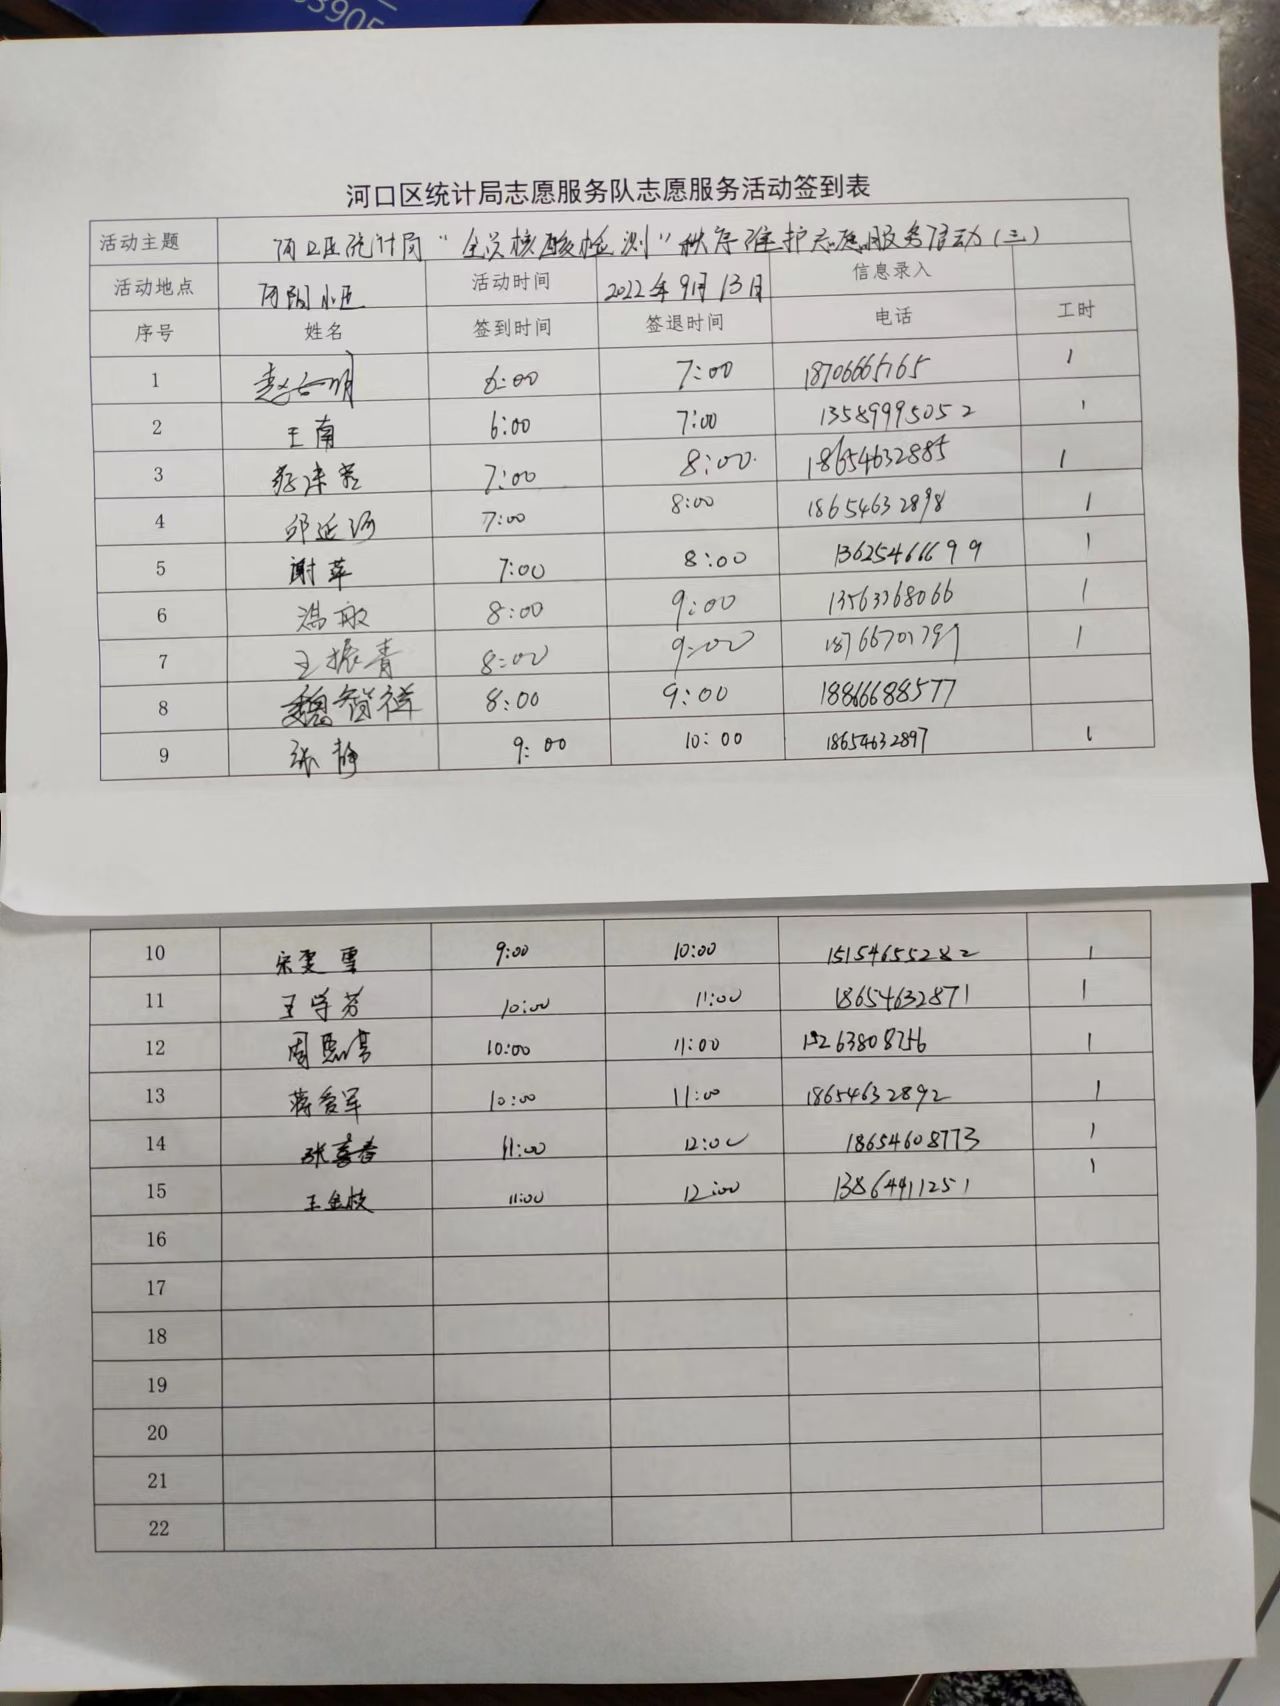 3905
河口区统计局志愿服务队志愿服务活动签到表
活动主题 河口区统计局“全员核酸检测”秩序维护志愿服务活动(三)
活动地点 河阳小区 活动时间 2022年9月13日 信息录入
序号 姓名 签到时间 签退时间 电话 工时
1 6:00 7:00 18706665765 1
2 王南 6:00 7:00 13589995052 1
3 7:00 8:00 18654632885 1
4 邱延河 7:00 8:00 18654632898 1
5 谢苹 7:00 8:00 13625466699 1
6 冯敏 8:00 9:00 13563368066 1
7 王振青 8:00 9:00 1
8 魏智祥 8:00 9:00 18866688577
9 张静 9:00 10:00 18654632897 1
10 宋雯雪 9:00 10:00 15154655282 1
11 王学芬 10:00 11:00 18654632871 1
12 10:00 11:00 15263808756 1
13 蒋爱军 10:00 11:00 18654632892 1
14 张喜春 11:00 12:00 18654608773 1
15 王金枝 11:00 12:00 13864411251 1
16
17
18
19
20
21
22